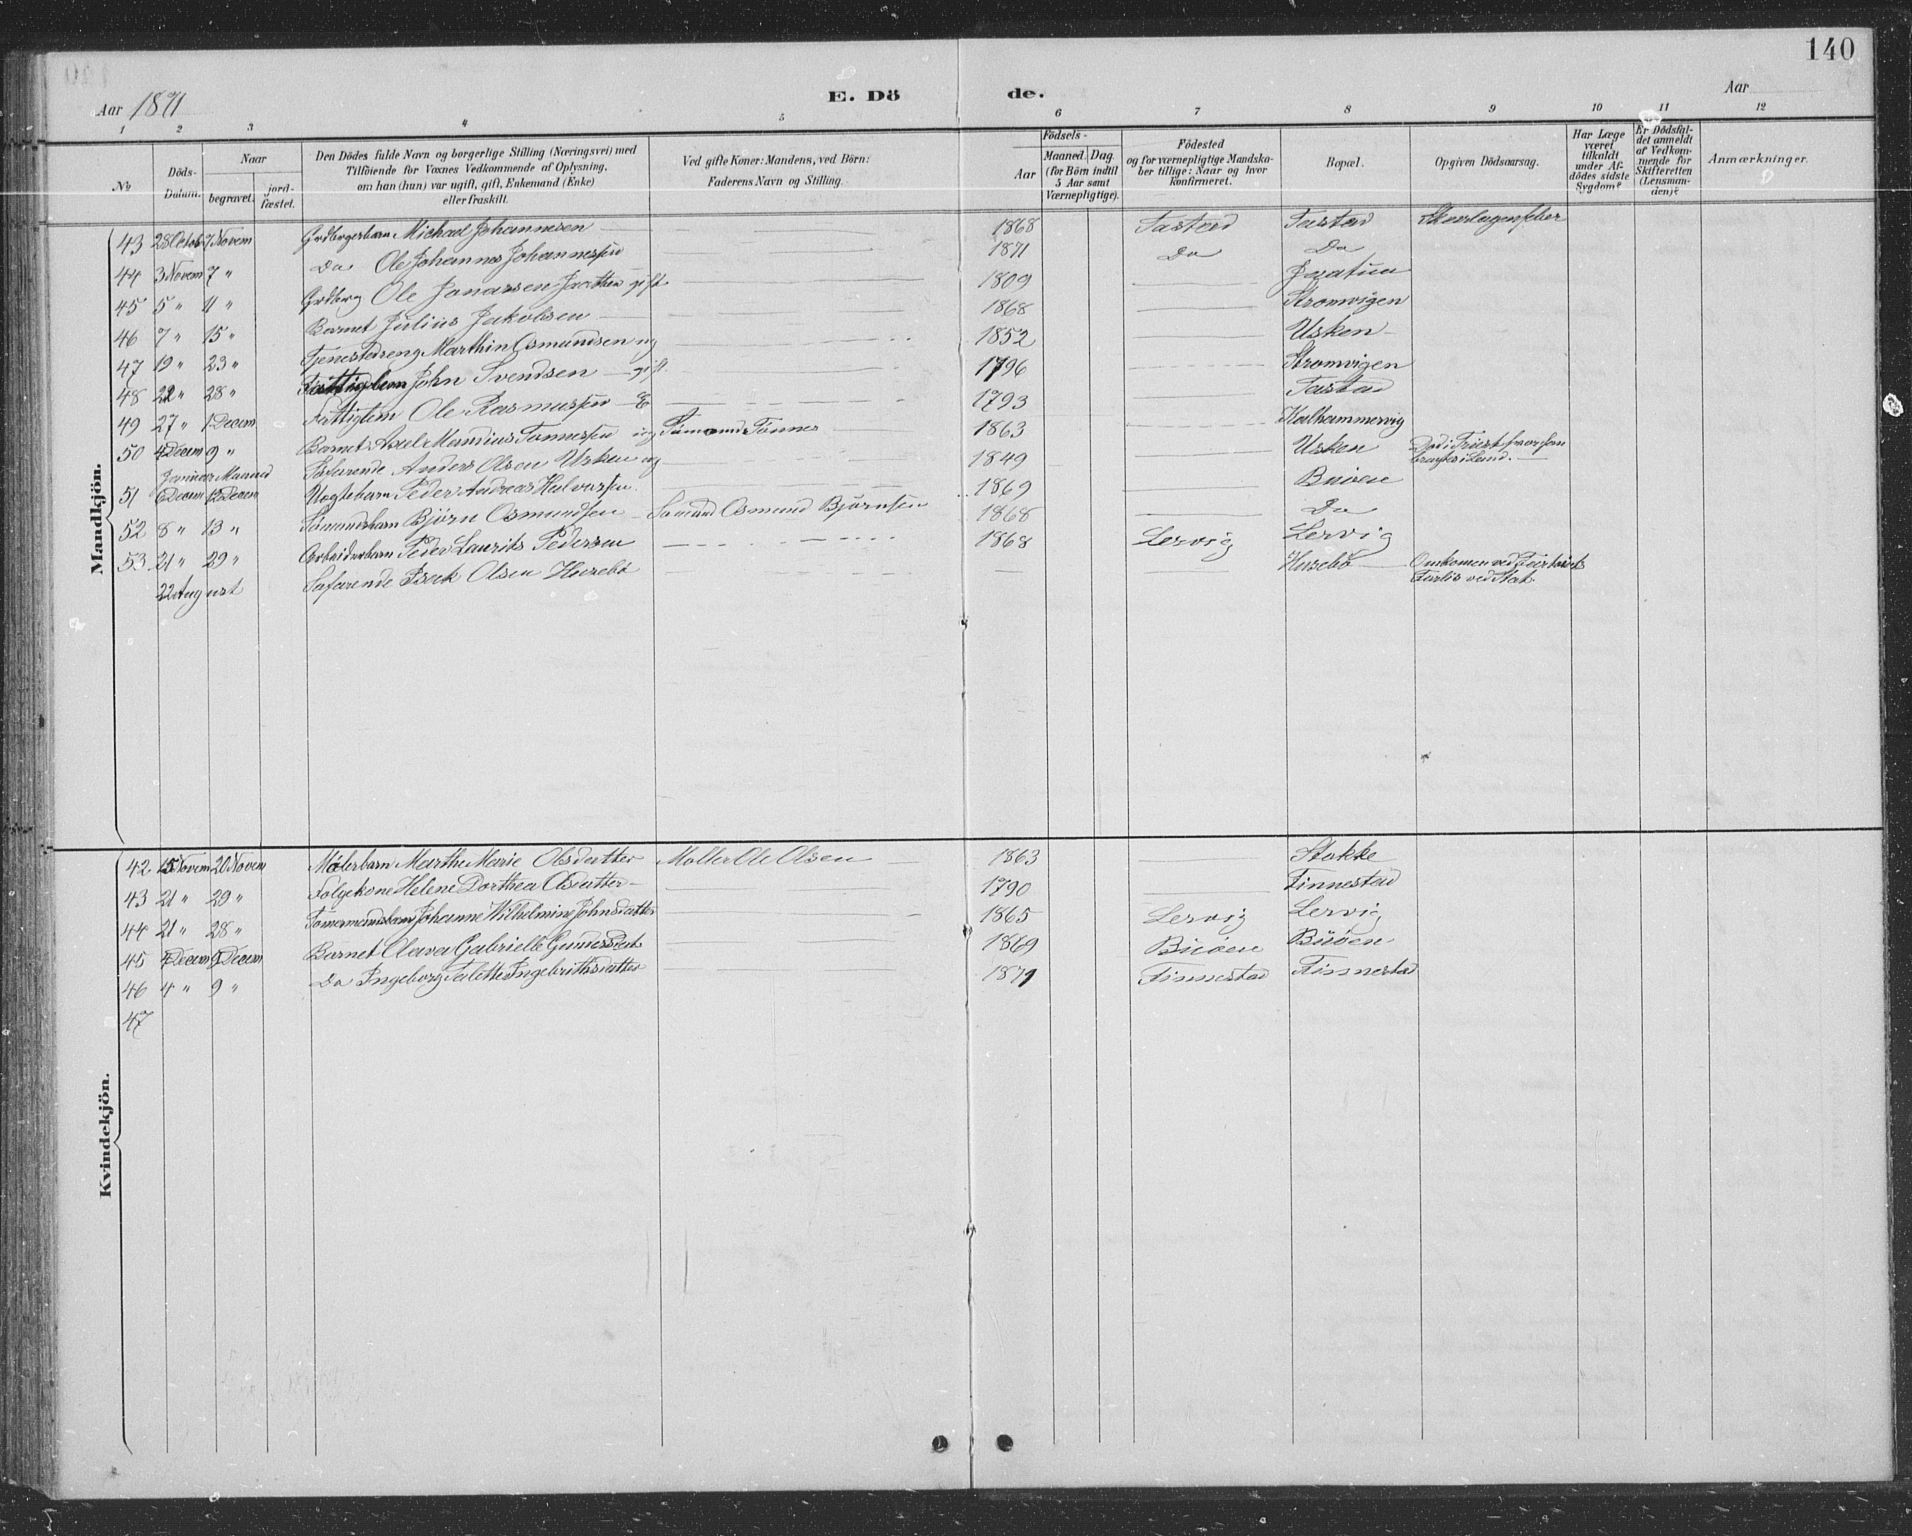 140
Aar 1871
E. Dö
de.
Aar
1 2 3 4 5 6 7 8 9 10 11 12
No
Döds-Datum.
Naar
begravet.
jord-fæstet.
Den Dödes fulde Navn og borgerlige Stilling (Næringsvei) med
Tilföiende for Voxnes Vedkommende af Oplysning,
om han (hun) var ugift, gift, Enkemand (Enke)
eller fraskilt.
Ved gifte Koner: Mandens, ved Börn:
Faderens Navn og Stilling.
Födsels-
Aar
Maaned. Dag.
(for Börn indtil
5 Aar samt
Værnepligtige).
Födested
og for værnepligtige Mandskaber tillige: Naar og hvor
konfirmeret.
Bopæl.
Opgiven Dödsaarsag.
Har Læge
været
tilkaldt
under Afdödes sidste
Sygdom?
Er Dödsfaldet anmeldt
af Vedkommende for
Skifteretten
(Lensmanden)?
Anmærkninger.
Mandkjön.
43 28 Octob 7 Novem Grdbrgersbarn Michael Johannesen 1868 Tastad Tastad Skarlagensfeber
44 3 Novem 7 " Do Ole Johannes Johannessen 1871 Do Do
45 5 " 11 " Grdbrg Ole Jonassen gift 1809
46 7 " 15 " Barnet Julius Jakobsen 1868 Stromvigen
47 19 " 23 " Tjenestedreng Marthin Osmundsen ug 1852 Usken
48 22 " 28 " Fattiglem John Svendsen gift 1796 Stromvigen
49 27 " 1 Decem Fattiglem Ole Rasmussen E 1793 Tastad
50 4 Decem 9 " Barnet Axel Mandius Tonnessen ug Tönnes 1863 Kalhammervig
Januar Maaned Söfarende Anders Olsen Usken ug 1849 Usken Död i Triest hvor han bragtes i Land.
51 6 Decem 12 Decem Vogtebarn Peder Andreas Halvorsen 1869 Buöen
52 8 " 13 " Sömandsbarn Björn Osmundsen Sömand Osmund Björnsen 1868 Do
53 21 " 29 " Arbeiderbarn Peder Laurits Pedersen 1868 Lervig Lervig
22 August Söfarende Isak Olsen Husebö Husebö Omkomen ved Fartöiets Forlis ved Stat
Kvindekjön.
42 15 Novem 20 Novem Möllerbarn Marthe Marie Olsdatter Möller Ole Olsen 1863 Stokke
43 21 " 29 " Folgekone Helene Dorthea Olsdatter 1790 Finnestad
44 21 " 28 " Tömermandsbarn Johanne Wilhelmine Johnsdatter 1865 Lervig Lervig
45 Decem Decem Barnet Olava Gabrielle Gundersdat 1869 Buöen Buöen
46 4 " 9 " Do Ingeborg Talette Ingebrithsdatter 1871 Finnestad Finnestad
47